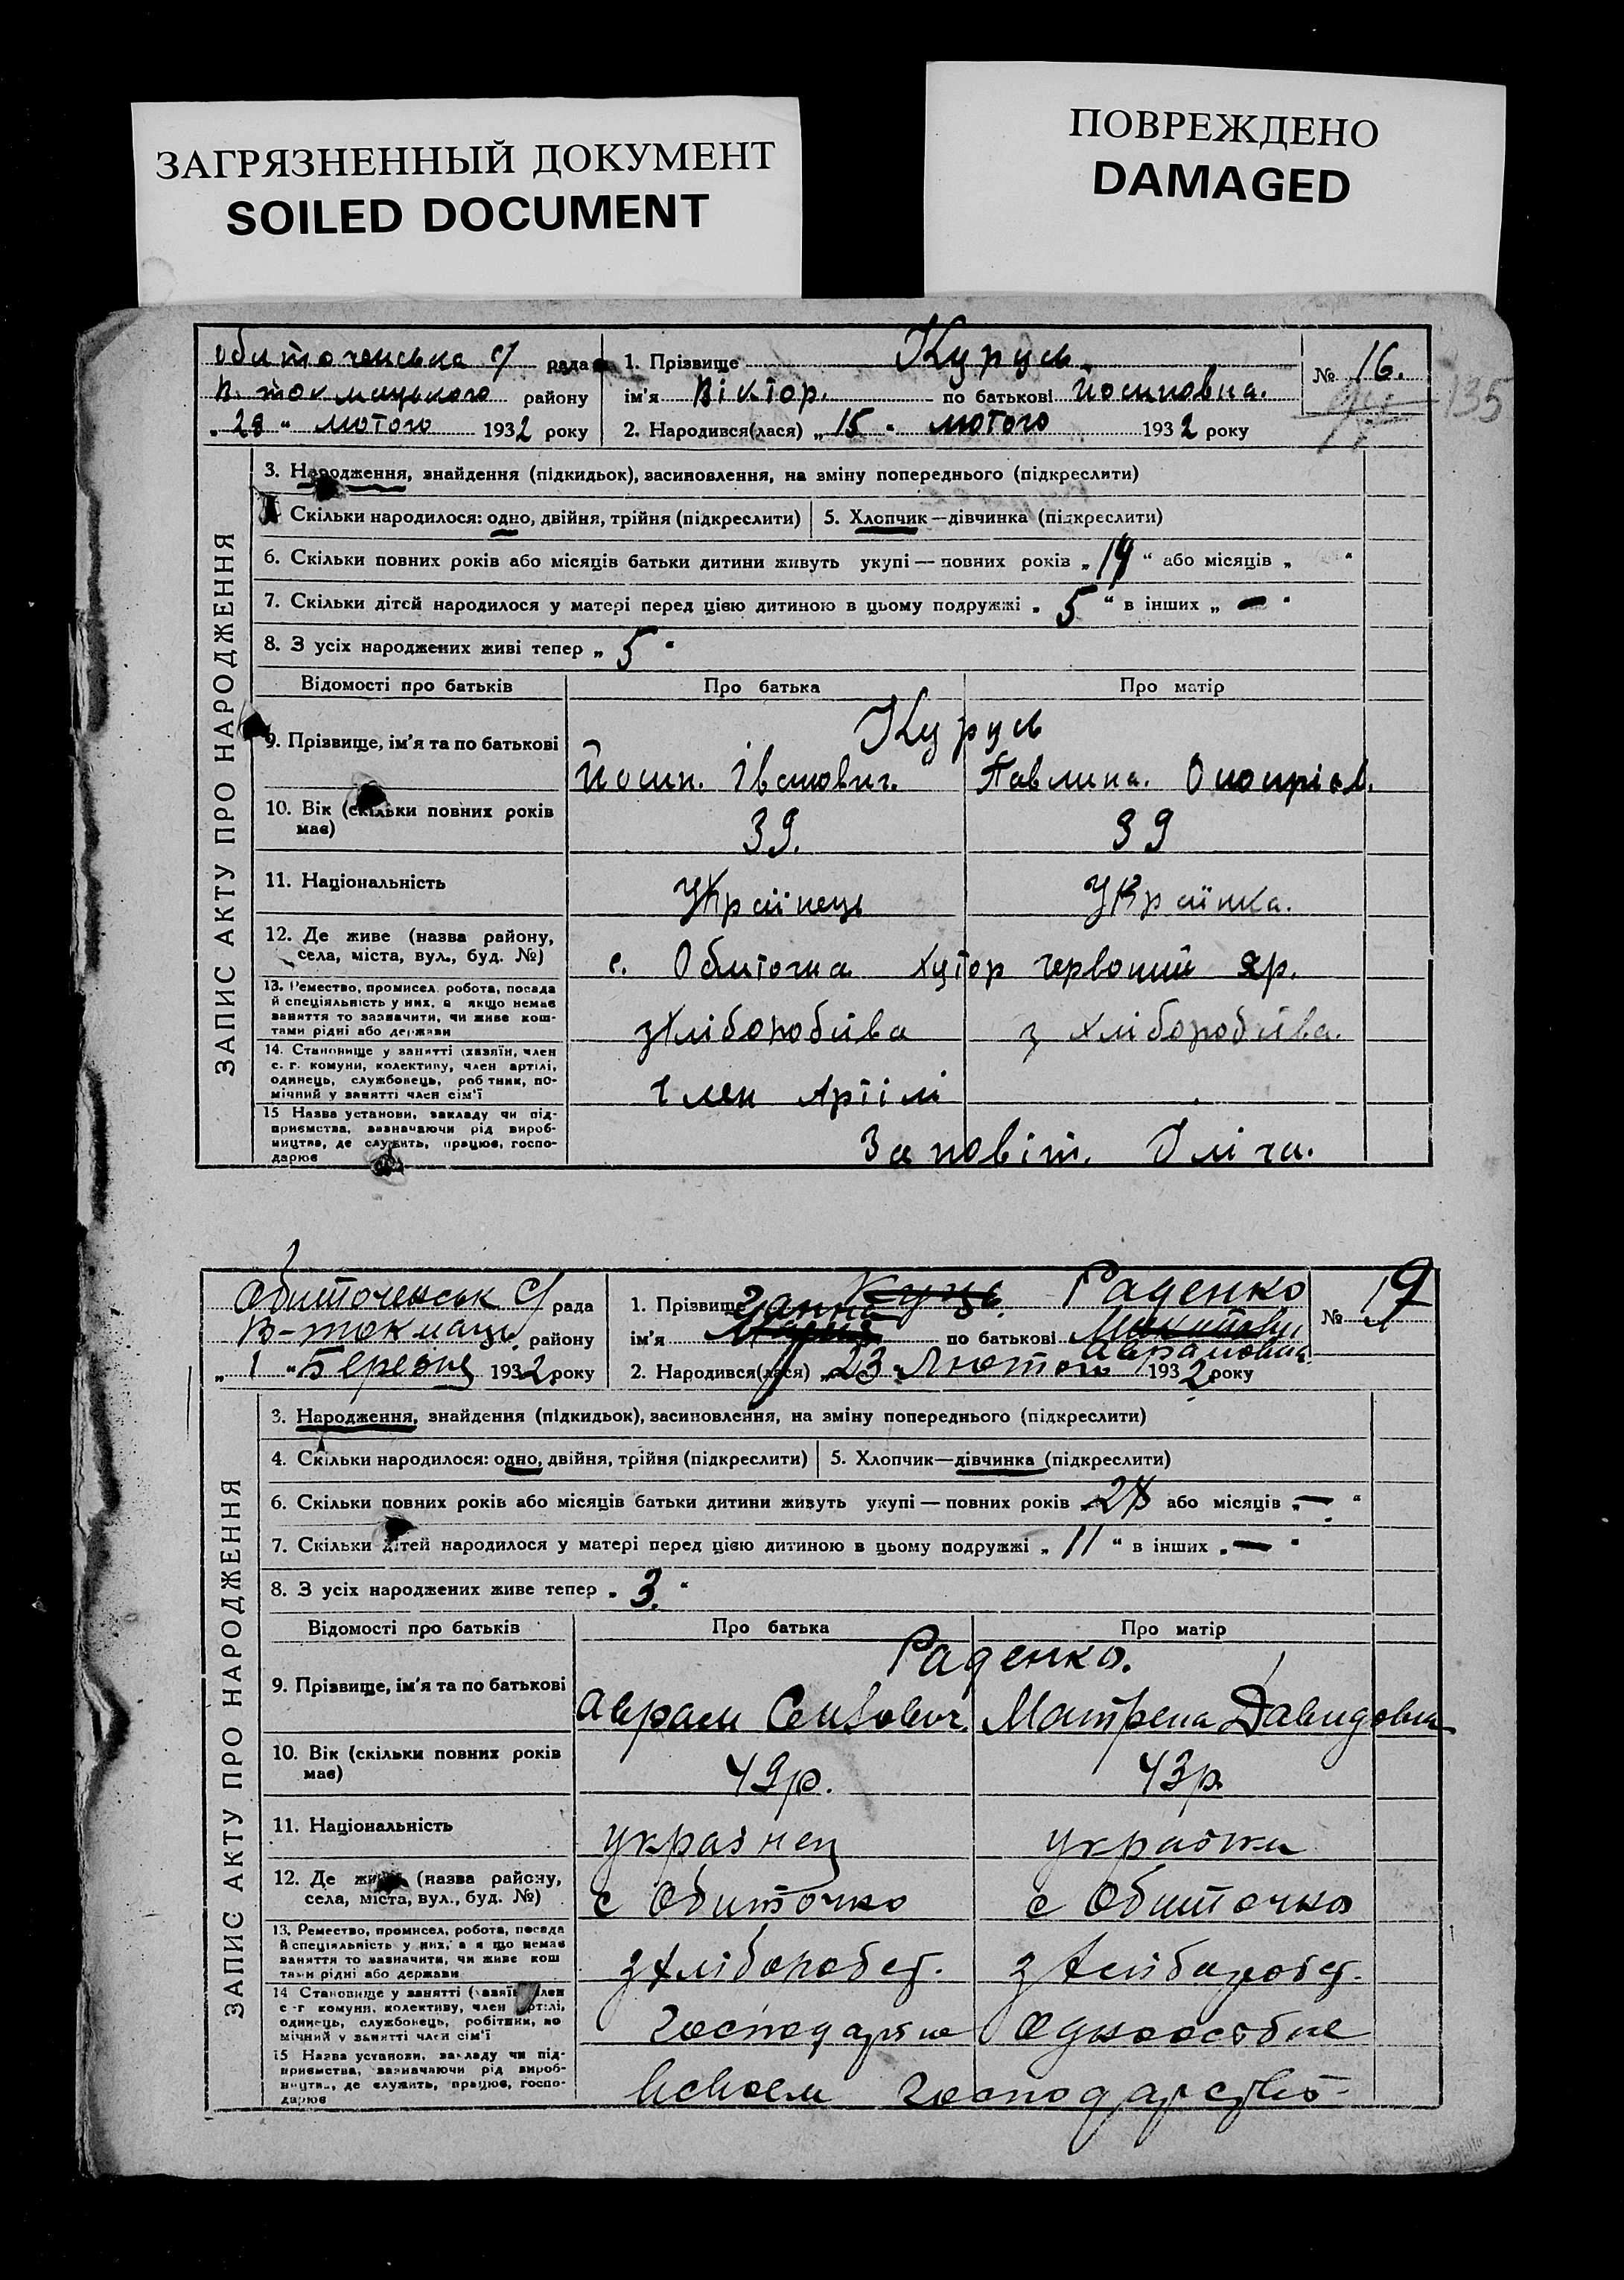 ЗАГРЯЗНЕННЫЙ ДОКУМЕНТ
SOILED DOCUMENT
ПОВРЕЖДЕНО
DAMAGED
Обиточенська с/ рада
В. токмацького району
„28“ лютого 1932 року
1. Прізвище Курусь
ім'я Віктор. по батькові Йосиповна.
2. Народився(лася) „15“ лютого 1932 року
№ 16.
135
ЗАПИС АКТУ ПРО НАРОДЖЕННЯ
3. Народження, знайдення (підкидьок), засиновлення, на зміну попереднього (підкреслити)
Скільки народилося: одно, двійня, трійня (підкреслити) 5. Хлопчик—дівчинка (підкреслити)
6. Скільки повних років або місяців батьки дитини живуть укупі — повних років „19“ або місяців „ “
7. Скільки дітей народилося у матері перед цією дитиною в цьому подружжі „5“ в інших „—“
8. З усіх народжених живі тепер „5“
Відомості про батьків Про батька Про матір
Курусь
9. Прізвище, ім'я та по батькові
Йосип. Іванович. Павлина.
10. Вік (скільки повних років має)
39. 39
11. Національність
Українець Українка.
12. Де живе (назва району, села, міста, вул., буд. №)
с. Обиточна хутор червоний яр.
13. Ремество, промисел, робота, посада
й спеціяльність у них, а якщо немає
заняття то зазначити, чи живе кош-
тами рідні або держави
з хліборобства з хліборобства.
14. Становище у занятті (хазяїн, член
с. г. комуни, колективу, член артілі,
одинець, службовець, робітник, по-
мічний у занятті член сім'ї
член Артілі
15 Назва установи, закладу чи під-
приємства, зазначаючи рід вироб-
ництва, де служить, працює, госпо-
дарює
Заповіт. Іліча.
Обиточенськ С/ рада
В-токмацьк району
„1“ Березня 1932 року
1. Прізвище Куць Раденко
ім'я Ганна по батькові Аврамовна
2. Народився(лася) „23“ Лютого 1932 року
№ 17
ЗАПИС АКТУ ПРО НАРОДЖЕННЯ
3. Народження, знайдення (підкидьок), засиновлення, на зміну попереднього (підкреслити)
4. Скільки народилося: одно, двійня, трійня (підкреслити) 5. Хлопчик—дівчинка (підкреслити)
6. Скільки повних років або місяців батьки дитини живуть укупі — повних років або місяців „—“
7. Скільки дітей народилося у матері перед цією дитиною в цьому подружжі „11“ в інших „—“
8. З усіх народжених живе тепер „3.“
Відомості про батьків Про батька Про матір
Раденко.
9. Прізвище, ім'я та по батькові
Аврам Матрена Давидовна
10. Вік (скільки повних років має)
49р. 43р
11. Національність
українец українка
12. Де живе (назва району, села, міста, вул., буд. №)
с Обиточко с Обиточко
13. Ремество, промисел, робота, посада
й спеціяльність у них, а якщо немає
заняття то зазначити, чи живе кош
тами рідні або держави
з хліборобст. з хліборобст.
14 Становище у занятті (хазяїн, член
с-г комуни, колективу, член артілі,
одинець, службовець, робітник, по
мічний у занятті член сім'ї
господартне Одноособне
15 Назва установи, закладу чи під-
приємства, зазначаючи рід вироб-
ництв., де служить, працює, госпо-
дарює
Всвоем господарстві